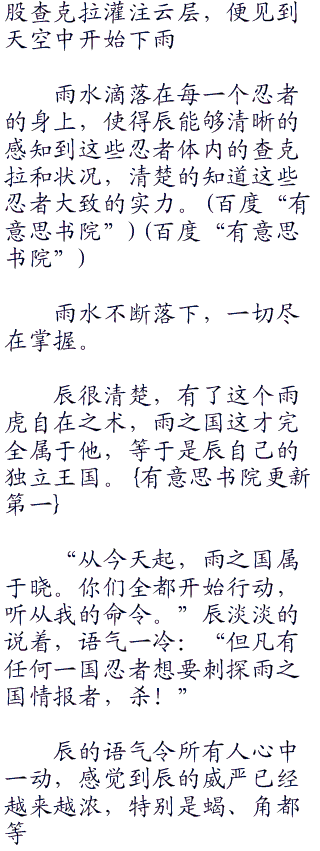 股查克拉灌注云层，便见到
天空中开始下雨
雨水滴落在每一个忍者
的身上，使得辰能够清晰的
感知到这些忍者体内的查克
拉和状况，清楚的知道这些
忍者大致的实力。(百度“有
意思书院”)(百度“有意思
书院”)
雨水不断落下，一切尽
在掌握。
辰很清楚，有了这个雨
虎自在之术，雨之国这才完
全属于他，等于是辰自己的
独立王国。{有意思书院更新
第一}
“从今天起，雨之国属
于晓。你们全都开始行动，
听从我的命令。”辰淡淡的
说着，语气一冷：“但凡有
任何一国忍者想要刺探雨之
国情报者，杀！”
辰的语气令所有人心中
一动，感觉到辰的威严已经
越来越浓，特别是蝎、角都
等